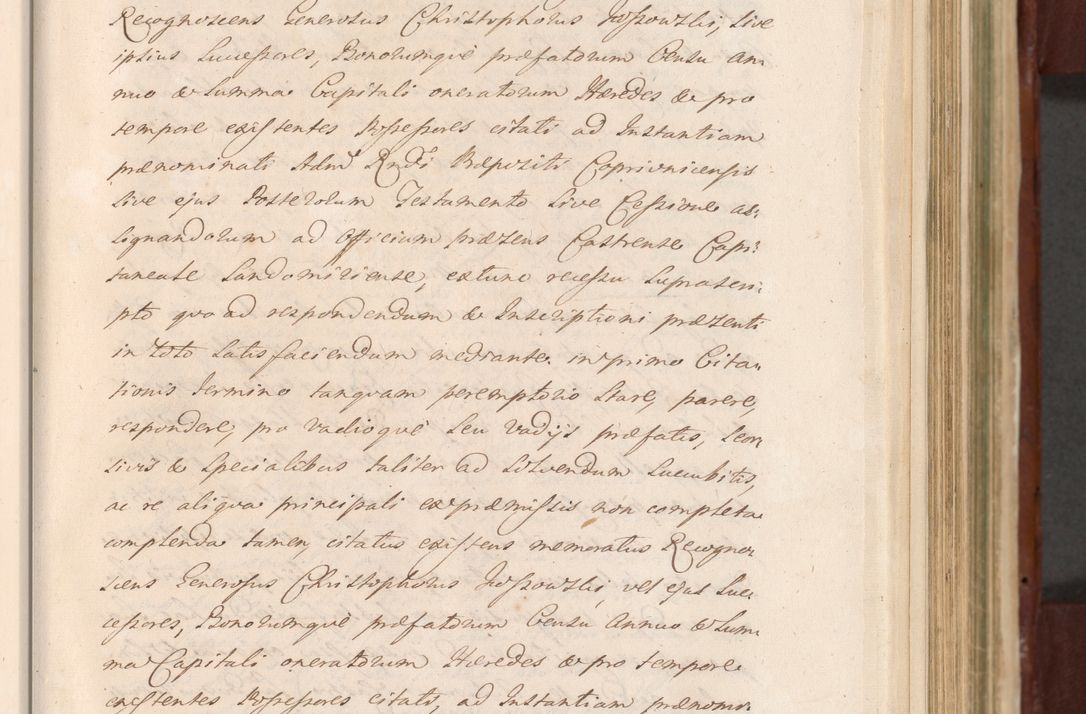 Recognoscens Generosus Christophorus Jossowski, sive
ipsius Successores, Bonorumquè præfatorum Censu An,
nuo & Summa Capitali oneratorum Hæredes & pro
tempore existentes Possessores citati ad Instantiam
prænominati Adm Rndi Præpositi Coprivnicensis
sive ejus Posterorum Testamento sive Cessione as:
signandorum ad Officium præsens Castrense Capi:
taneale Sandomiriense, extunc recessu suprascri,
pto quo ad respondendum & Inscriptioni præsenti
in toto satisfaciendum mediante in primo Cita,
tionis Termino tanquam peremptorio stare, parere,
respondere, pro Vadioquè seu Vadijs præfatis, seor,
sivis & specialibus taliter ad solvendum succubitis,
ac re aliqua principali ex præmissis non completa
complenda tamen, citatus existens memoratus Recogno,
scens Generosus Christophorus Jossowski, vel ejus Suc,
cessores, Bonorumquè præfatorum Censu Annuo & Sum,
ma Capitali oneratorum Hæredes & pro tempore
existentes Possessores citati, ad Instantiam prænomi,